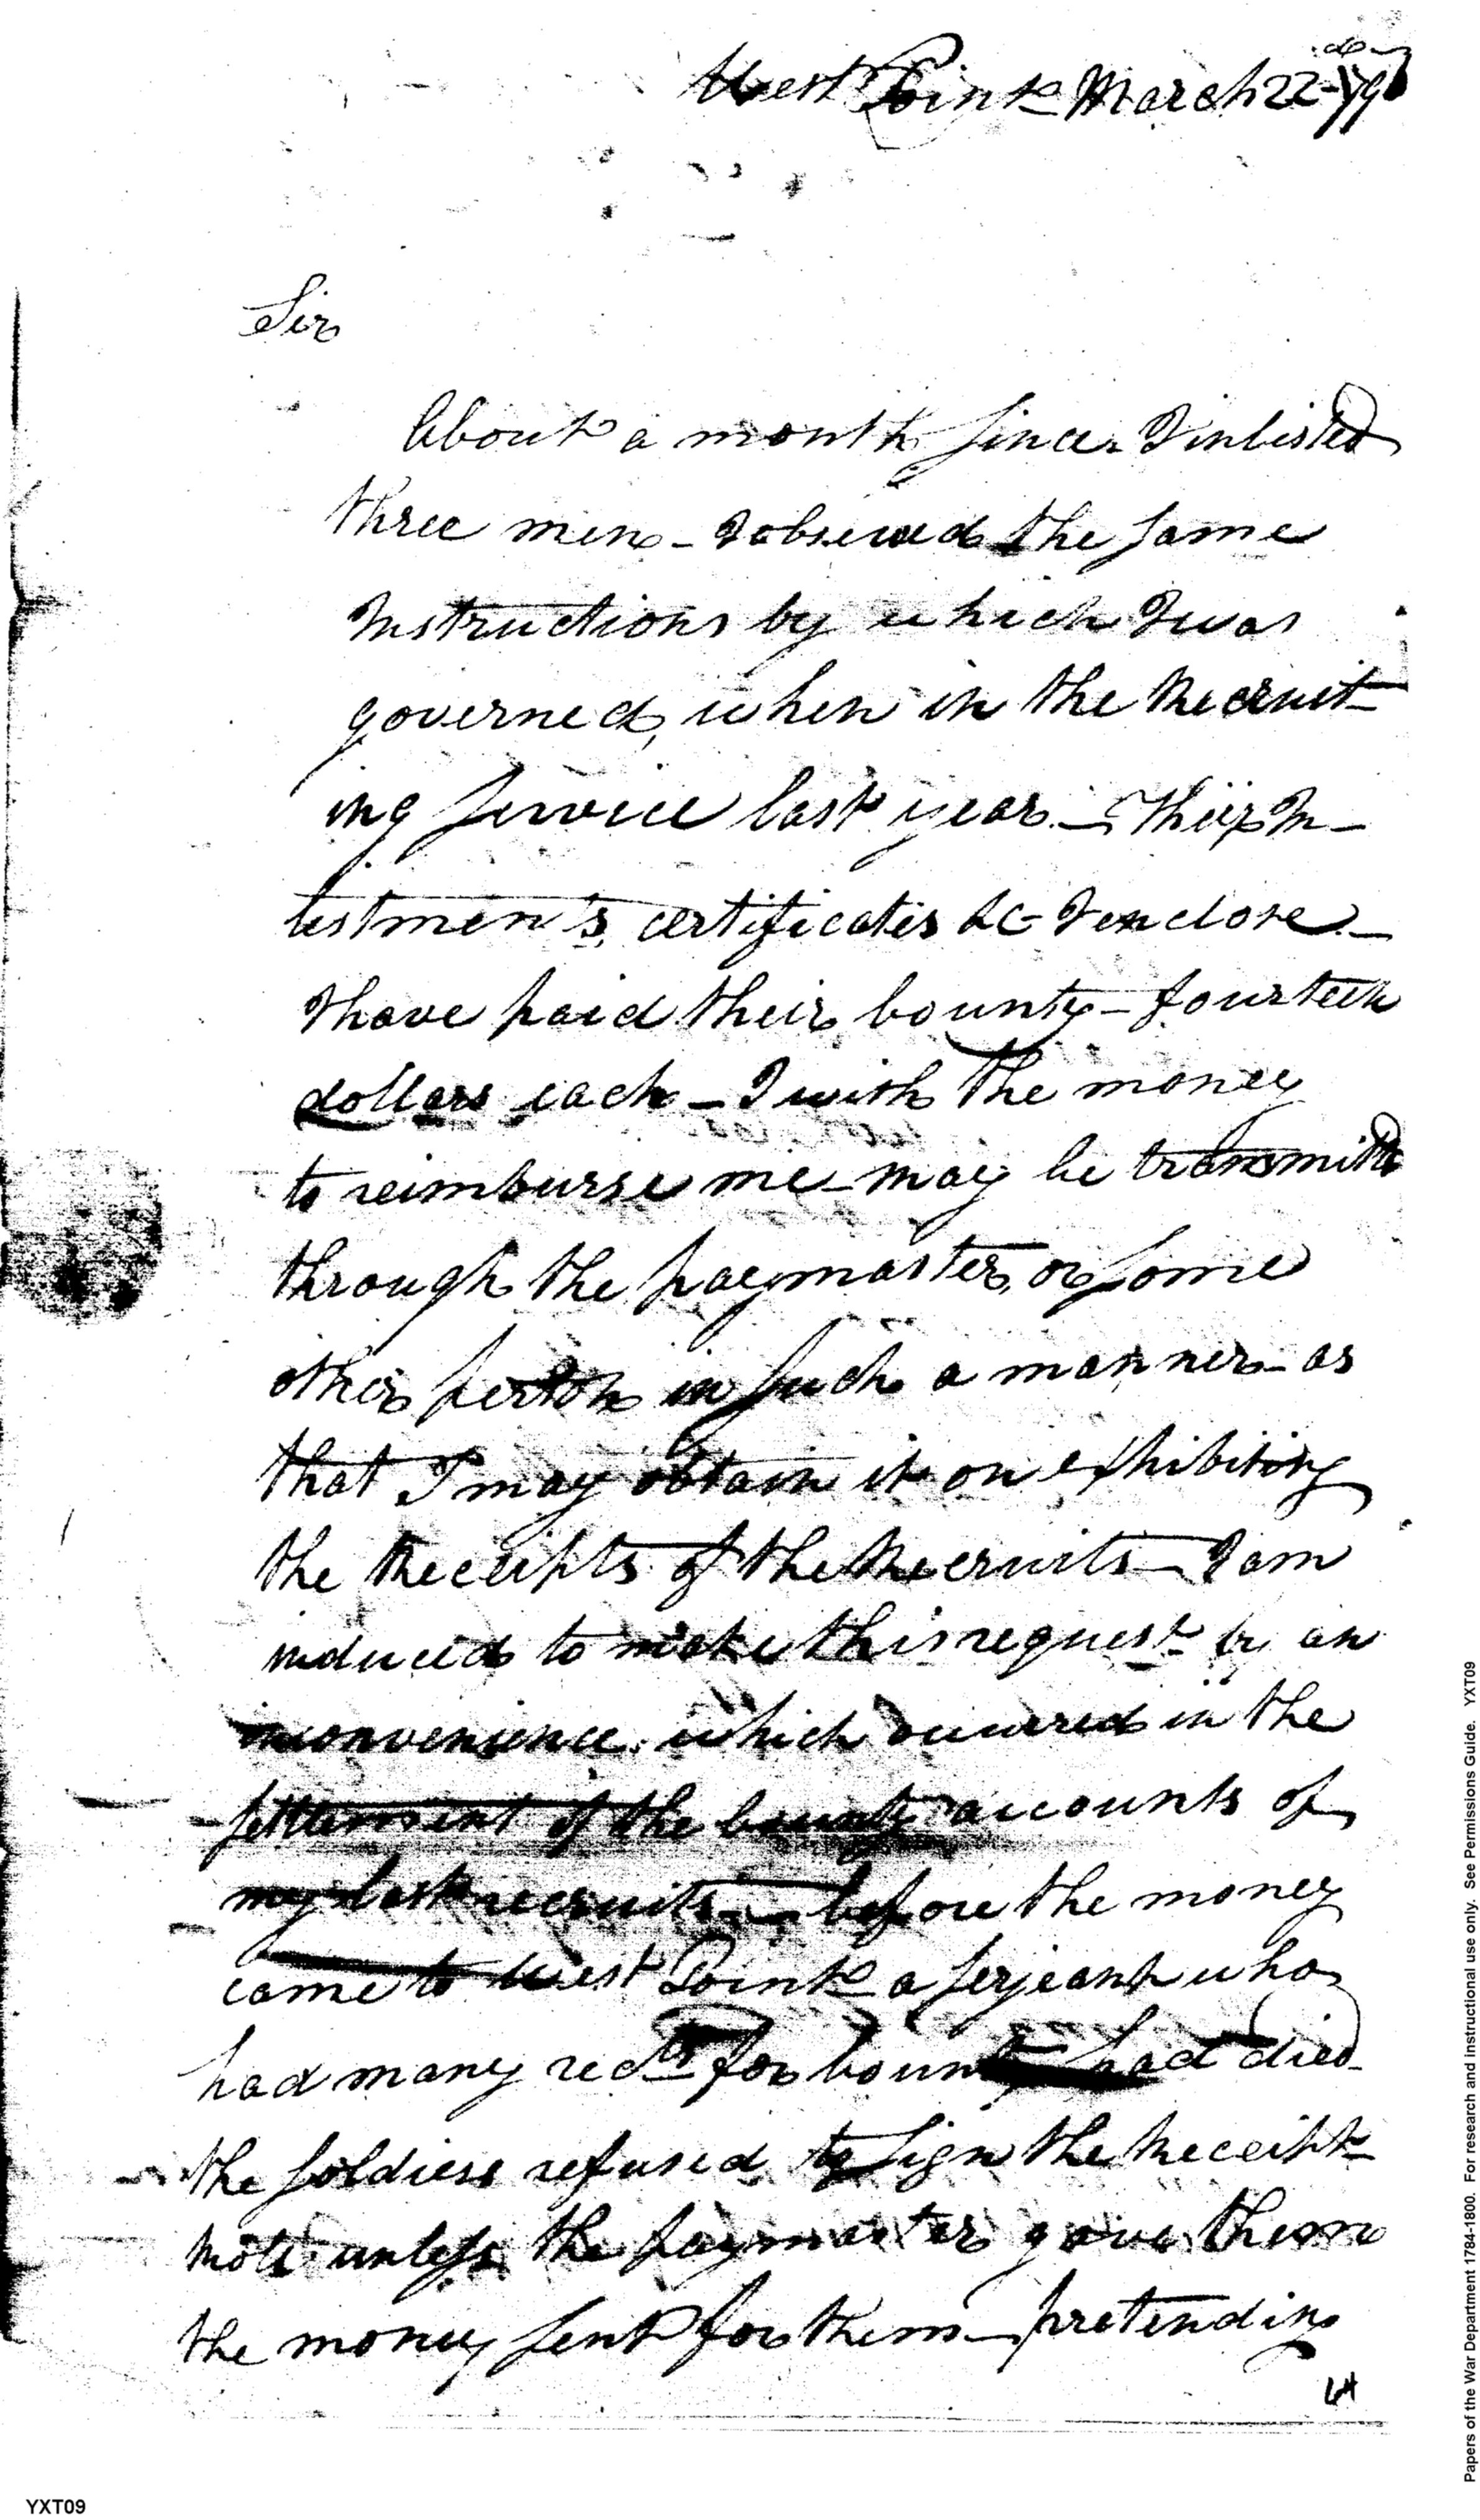 West Point March 22d 179
Sir
About a month since I inlisted
three men - I observed the same
Instructions by which I was
governed, when in the Recruit-
ing service last year - Their In-
listments, certificates &c I enclose. -
I have paid their bounty - fourteen
dollars each - I wish the money
to reimburse me - may be transmitd
through the paymaster, or some
other person in such a manner - as
that I may obtain it on exhibiting
the Receipts of the Recruits - I am
induced to make this request by an
inconvenience which occurred in the
settlement of the bounty accounts of
my last recruits - before the money
came to West Point a serjeant who
had many recets for bounty had died
the soldiers refused to sign the Receipt
Rolls unless the paymaster gave them
the money sent for them - pretending
64
YXT09
Papers of the War Department 1784-1800. For research and instructional use only. See Permissions Guide. YXT09